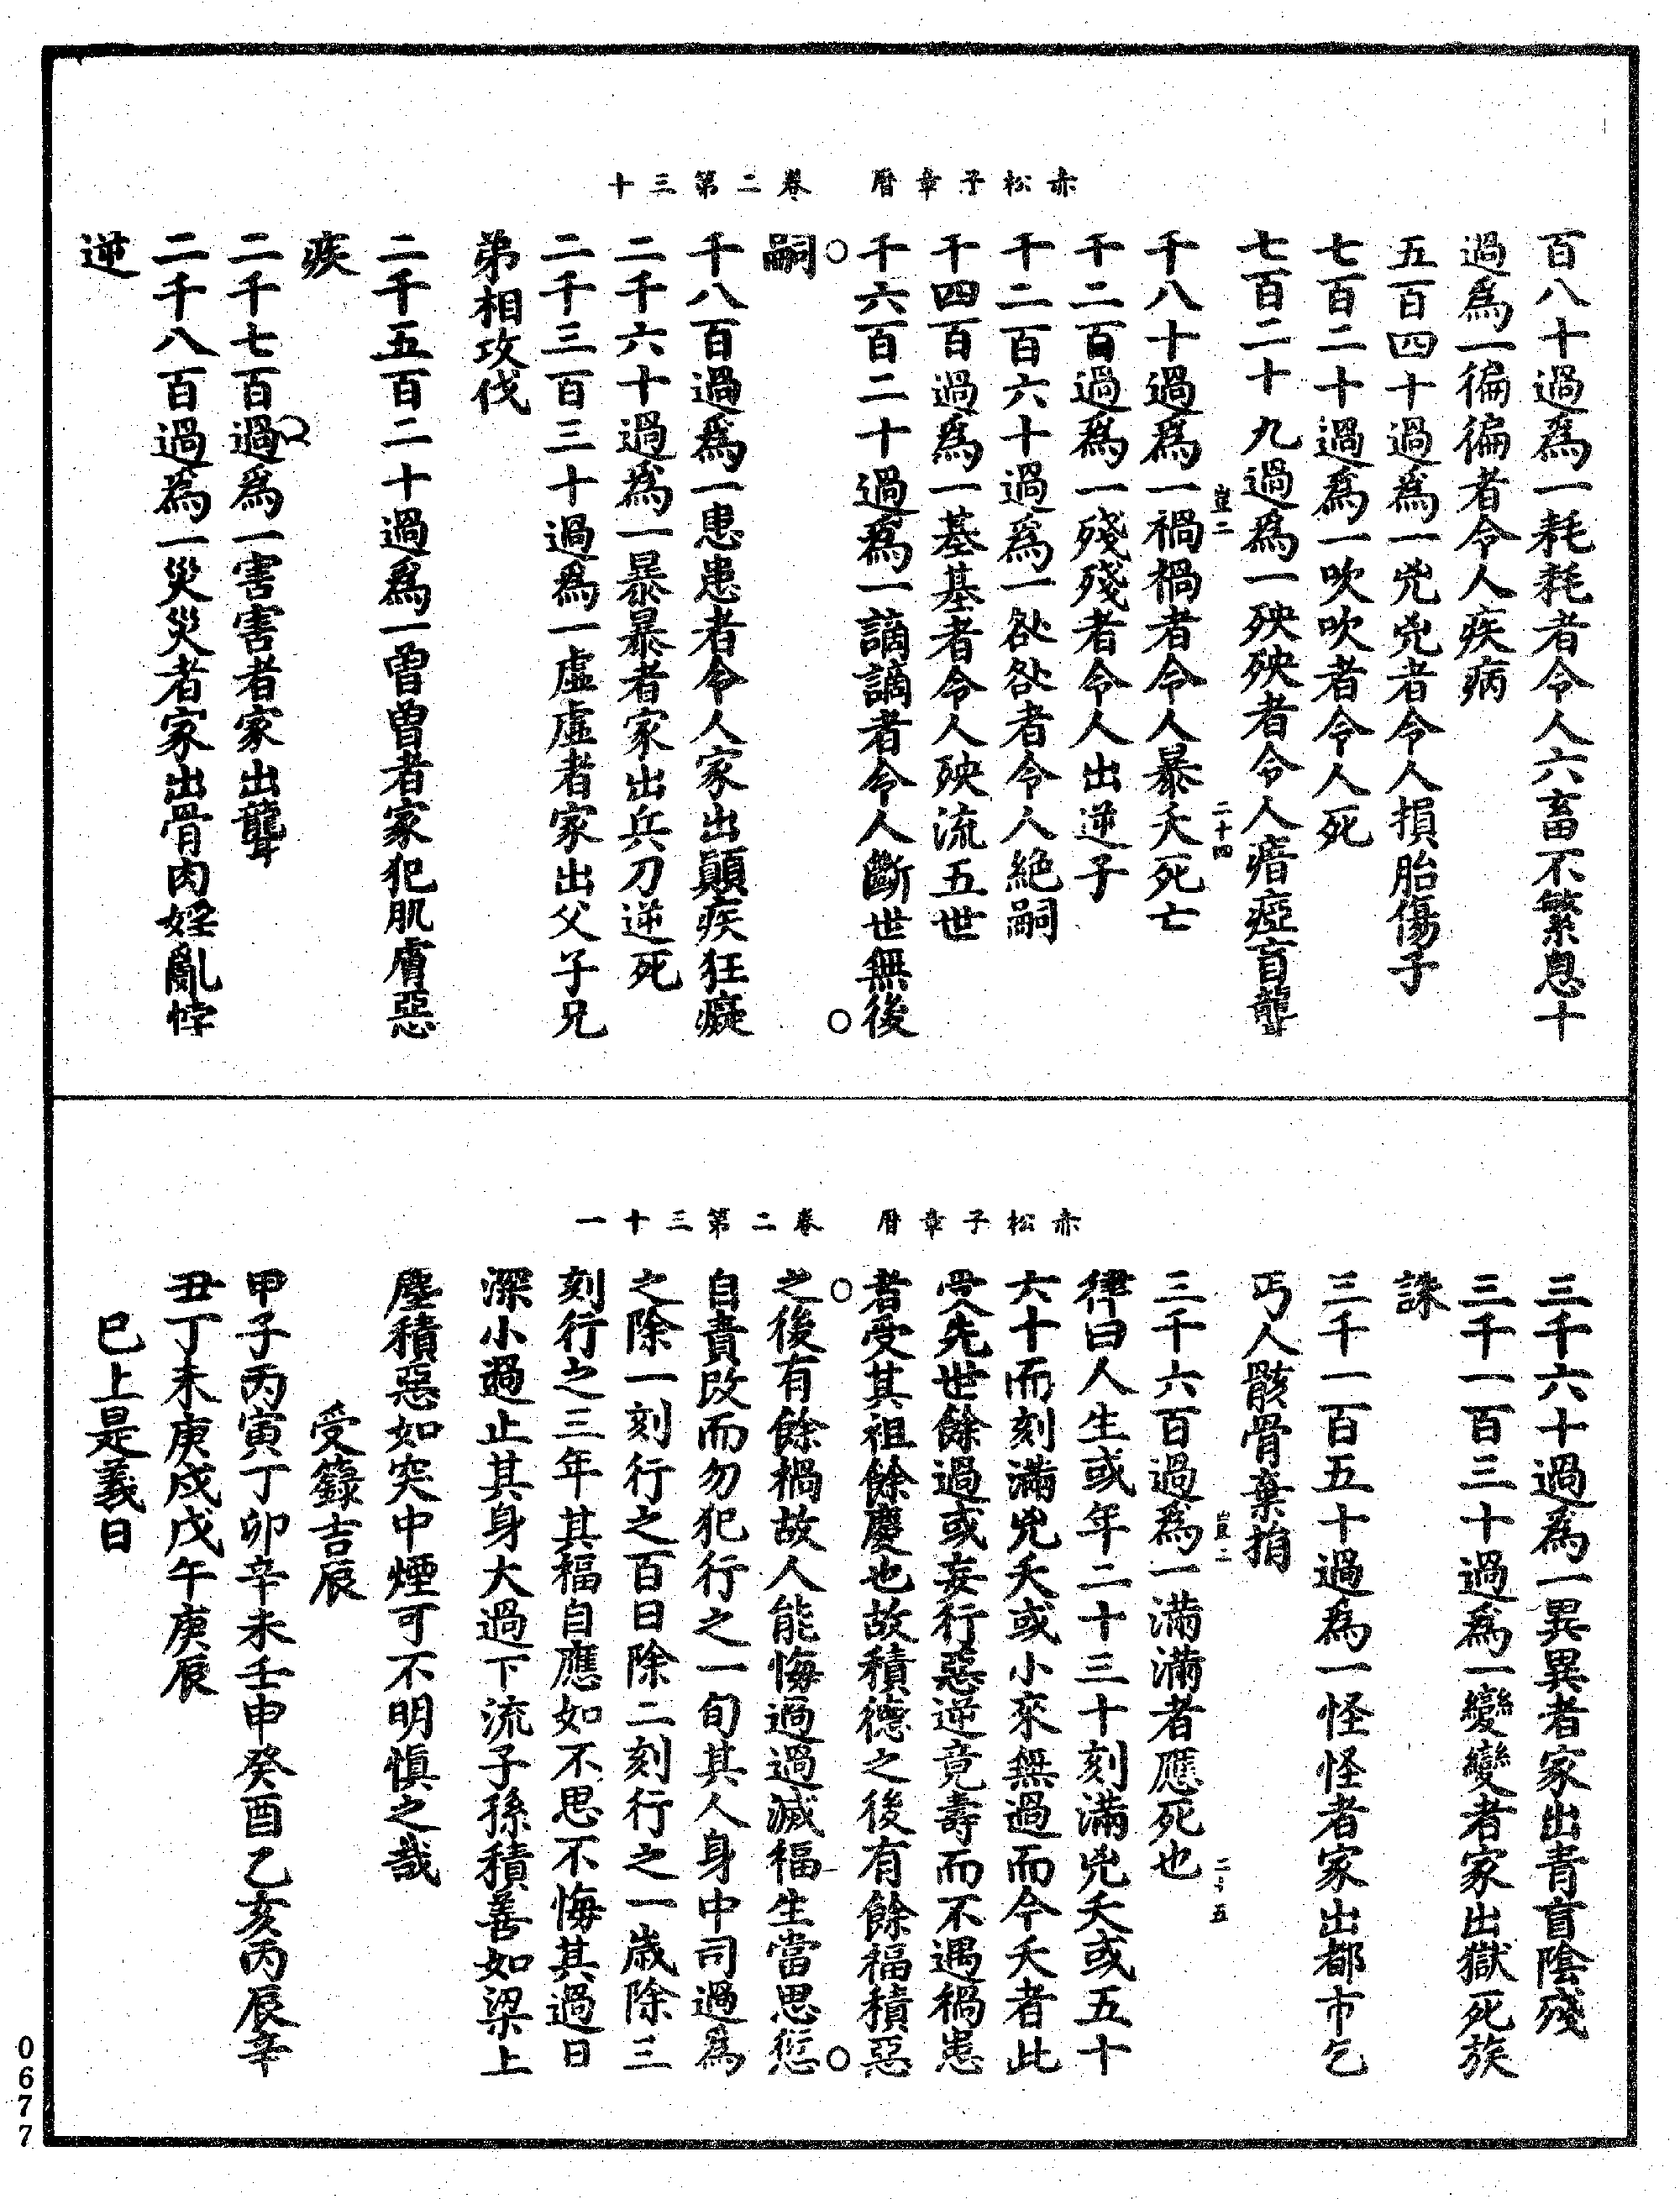 赤松子章曆　卷二第三十
百八十過爲一耗耗者令人六畜不繁息十
過爲一徧徧者令人疾病
五百四十過爲一兇兇者令人損胎傷子
七百二十過爲一吹吹者令人死
七百二十九過爲一殃殃者令人瘖瘂盲聾
豈二　二十四
千八十過爲一禍禍者令人暴夭死亡
千二百過爲一殘殘者令人出逆子
千二百六十過爲一咎咎者令人絕嗣
千四百過爲一基基者令人殃流五世
千六百二十過爲一謫謫者令人斷世無後
嗣
千八百過爲一患患者令人家出顛疾狂癡
二千六十過爲一暴暴者家出兵刀逆死
二千三百三十過爲一虛虛者家出父子兄
弟相攻伐
二千五百二十過爲一曾曾者家犯肌膚惡
疾
二千七百過爲一害害者家出聾
二千八百過爲一災災者家出骨肉婬亂悖
逆
赤松子章曆　卷二第三十一
三千六十過爲一異異者家出青盲陰殘
三千一百三十過爲一變變者家出獄死族
誅
三千一百五十過爲一怪怪者家出都市乞
丐人骸骨棄捐
豈二　二十五
三千六百過爲一滿滿者應死也
律曰人生或年二十三十刻滿兇夭或五十
六十而刻滿兇夭或小來無過而今夭者此
受先世餘過或妄行惡逆竟壽而不遇禍患
者受其祖餘慶也故積德之後有餘福積惡
之後有餘禍故人能悔過過減福生當思愆
自責改而勿犯行之一旬其人身中司過爲
之除一刻行之百日除二刻行之一歲除三
刻行之三年其福自應如不思不悔其過日
深小過止其身大過下流子孫積善如梁上
塵積惡如突中煙可不明愼之哉
受籙吉辰
甲子丙寅丁卯辛未壬申癸酉乙亥丙辰辛
丑丁未庚戌戊午庚辰
巳上是義日
0677